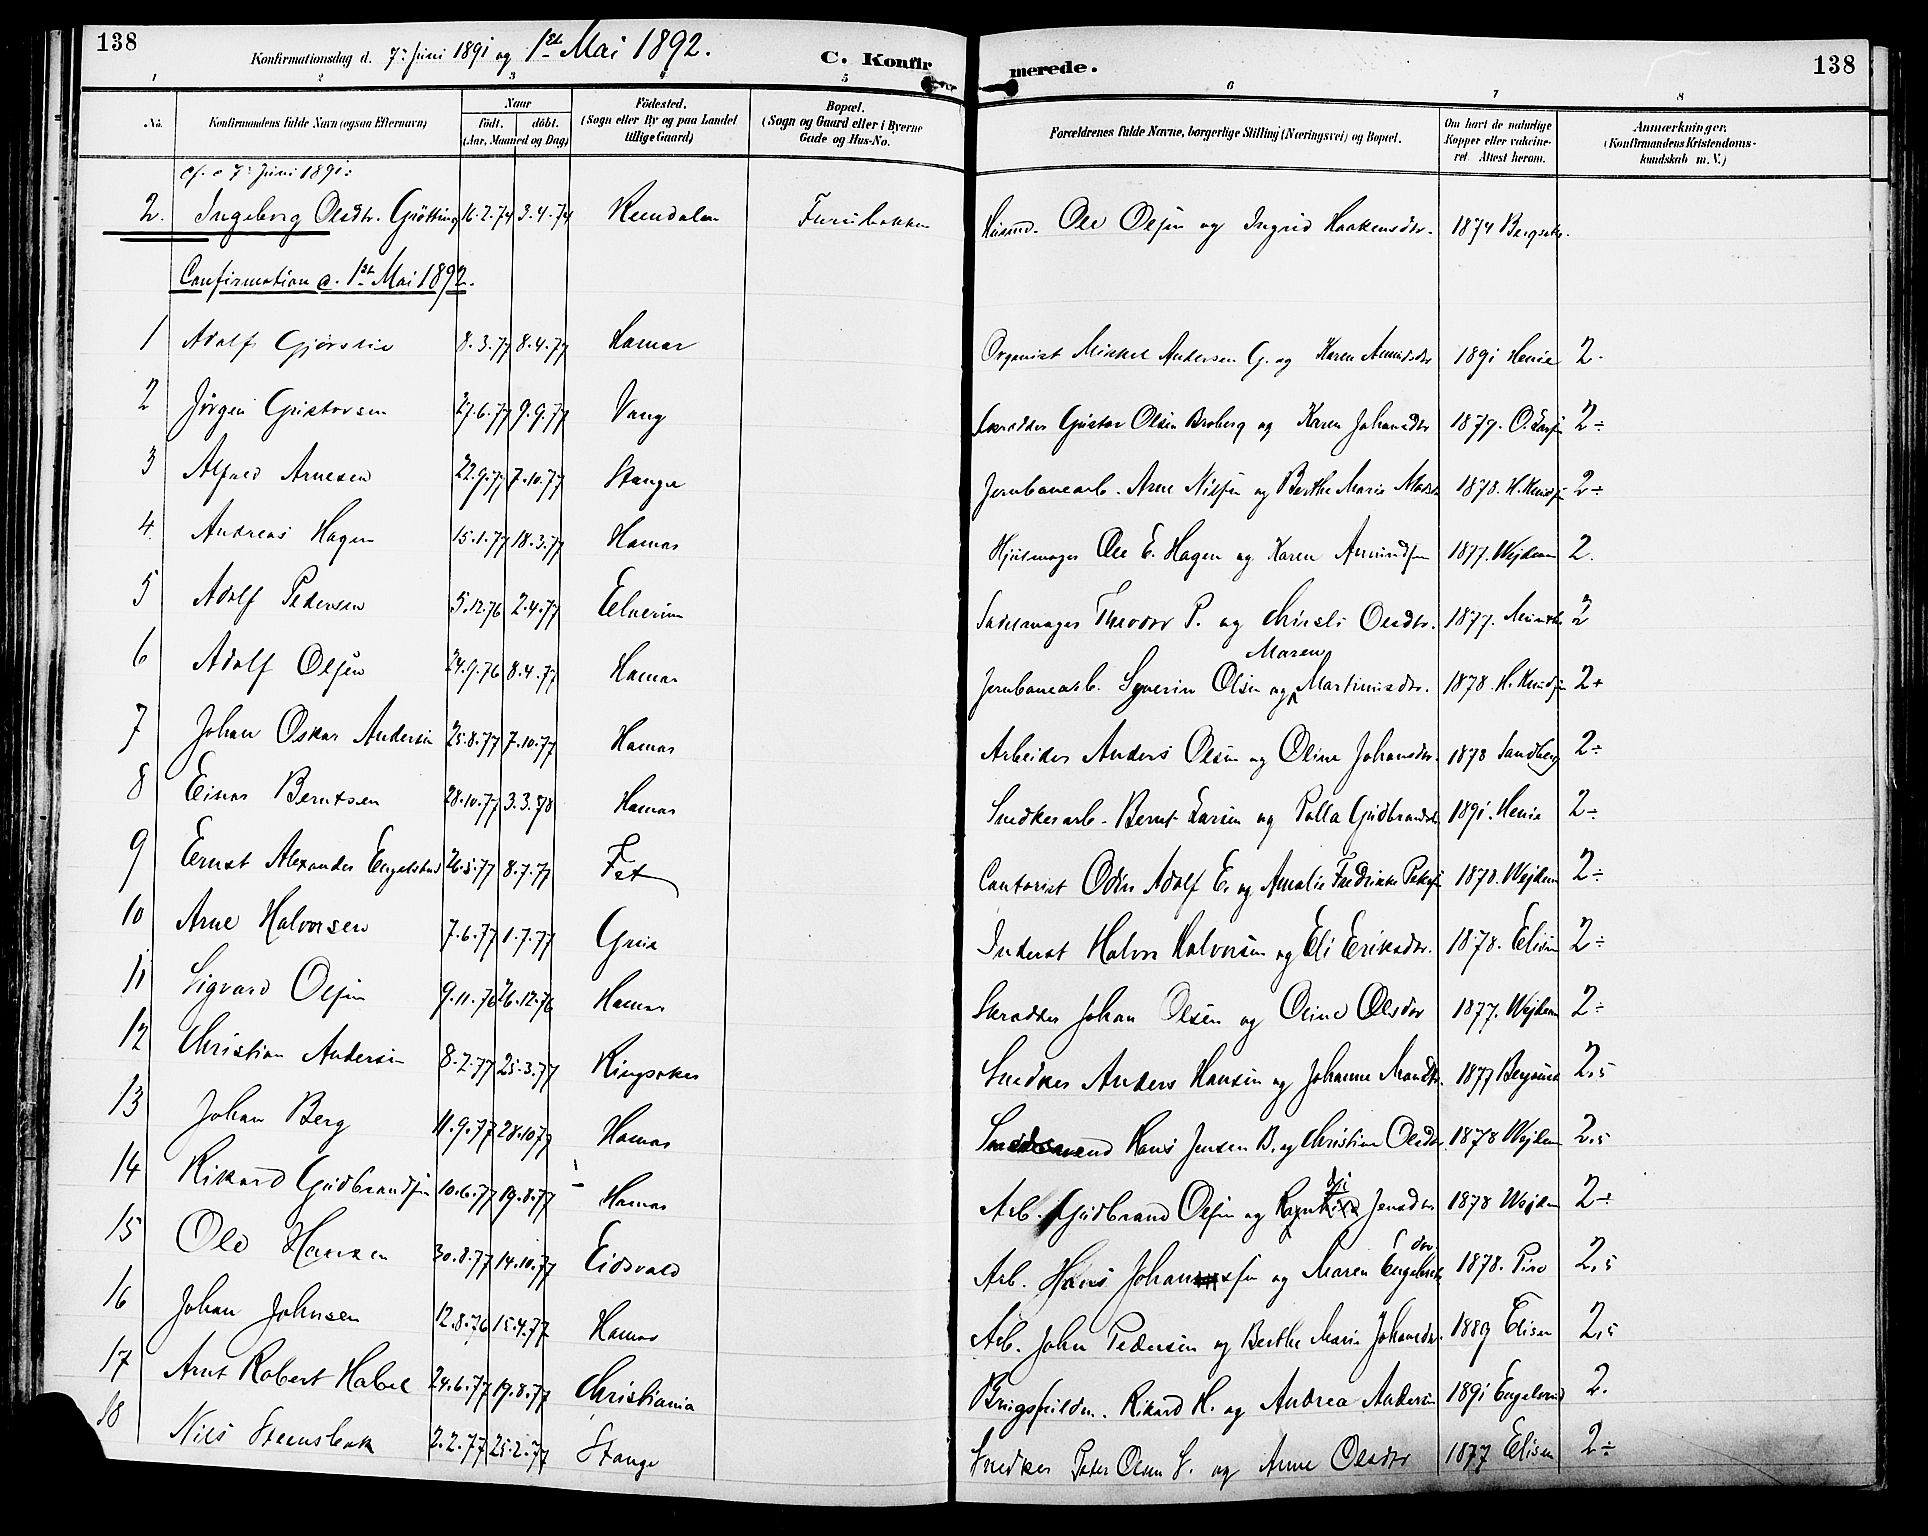 138
Konfirmationsdag d. 7: Juni 1891 og 1ste Mai 1892. C. Konfirmerede. 138
1 2 3 4 5 6 7 8
No. Konfirmandens fulde Navn (ogsaa Efternavn) Naar födt. döbt. (Aar, Maaned og Dag) Födested. (Sogn eller By og paa Landet tillige Gaard) Bopæl. (Sogn og Gaard eller i Byerne Gade og Hus-No. Forældrenes fulde Navne, borgerlige Stilling (Næringsvei) og Bopæl. Om havt de naturlige Kopper eller vakcineret. Attest herom. Anmærkninger, (Konfirmandens Kristendomskundskab m. V.)
7: Juni 1891:
2. Ingeborg Olsdtr. Grötting 16.2.74 3.4.74 Rendalen Furubakken Husmd. Ole Olsen og Ingrid Haakensdtr. 1874
Confirmation d. 1ste Mai 1892.
1 Adolf 8.3.77 8.4.77 Hamar Organist Mikkel Andersen G. og Karen Amundsdtr 1891 Henie 2.
2 Jörgen Gustavsen 27.6.77 9.9.77 Vang Skrædder Gustav Olsen Broberg og Karen Johansdtr 1879. 2÷
3 Alfred Arnesen 22.9.77 7.10.77 Stange Jernbanearb. Arne Nilsen og Berthe Marie 1878. H. Knudsen 2÷
4. Andreas Hagen 15.1.77 18.3.77 Hamar Hjulmager Ole E. Hagen og Karen Amundsen 1877. Wejdem 2.
5 Adolf Pedersen 5.12.76 2.4.77 Elverum Sadelmager Theodor P. og Olsdtr. 1877. 2
6 Adolf Olsen 24.9.76 8.4.77 Hamar Jernbanearb. Syverin Olsen og Maren Martinusdtr. 1878 H. Knudsen 2+
7 Johan Oskar Andersen 25.8.77 7.10.77 Hamar Arbeider Anders Olsen og Oline Johansdtr. 1878 Sandberg 2÷
8 Einar Berntsen 28.10.77 3.3.78 Hamar Snedkerarb. Bernt Larsen og Gudbrandsdtr 1891. Henie 2÷
9 Ernst Alexander Engelstad 26.5.77 8.7.77 Fet Contorist Odin Adolf E. og Amalie Fredrikke 1878. Wejdem 2÷
10 Arne Halvorsen 7.6.77 1.7.77 Grue Inderst Halvor Halvorsen og Eli Eriksdtr. 1878. 2÷
11 Sigvard Olsen 9.11.76 26.12.76 Hamar Skrædder Johan Olsen og Oline Olsdtr 1877. Wejdem 2÷
12 Christian Andersen 8.2.77 25.3.77 Ringsaker Snedker Anders Hansen og Johanne 1877 2,5
13 Johan Berg 11.9.77 28.10.77 Hamar Hans Jensen B. og Christine Olsdtr 1878 Wejdem 2,5
14 Rikard Gudbrandsen 10.6.77 19.8.77 Hamar Arb. Gudbrand Olsen og Jensdtr 1878 Wejdem 2÷
15 Ole Hansen 30.8.77 14.10.77 Eidsvold Arb. Hans Johansen og Maren Engebretsdtr. 1878. 2,5
16 Johan Johnsen 12.8.76 15.4.77 Hamar Arb. John Pedersen og Berthe Marie Johansdtr. 1889 Elisen 2,5
17 Arnt Robert Habel 24.6.77 19.8.77 Christiania Rikard H. og Andrea Andersen 1891 Engelsrud 2.
18 Nils Steensbak 2.2.77 25.2.77 Stange Snedker Peter Olsen S. og Anne Olsdtr 1877 Elisen 2÷